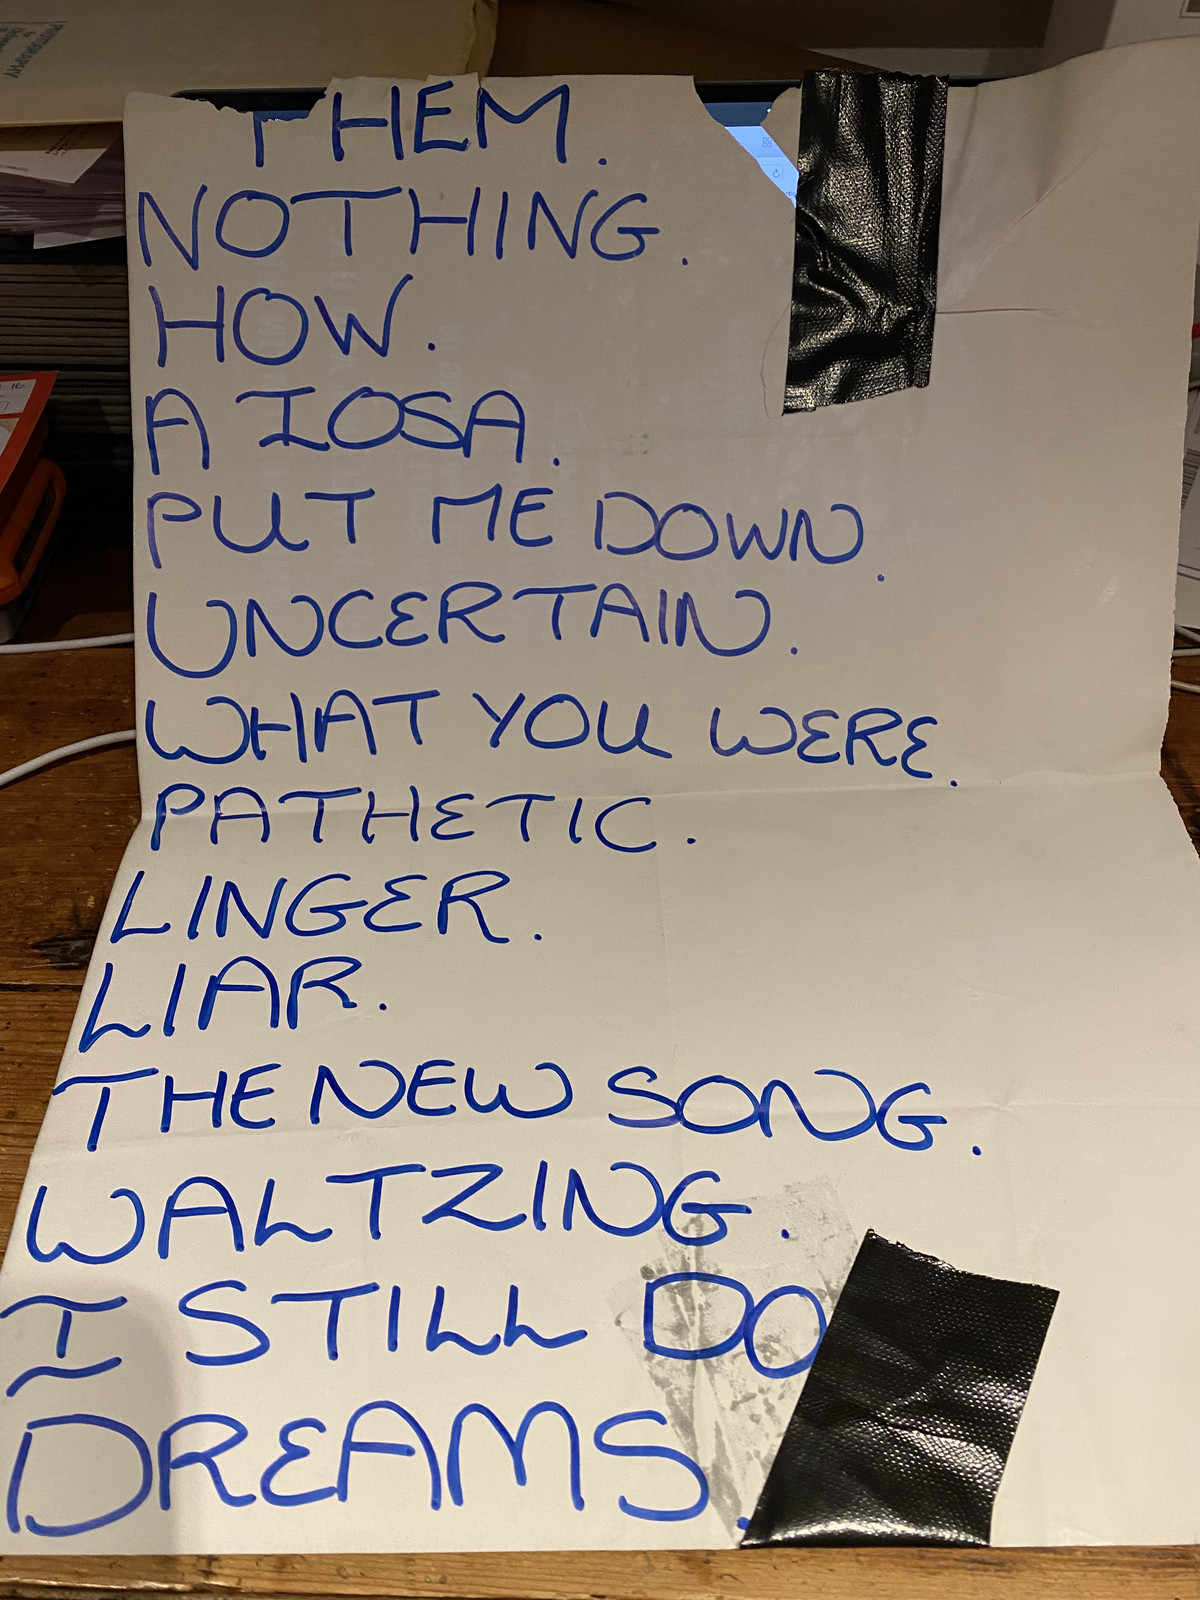 PHOTOGRAPHY
THEM.
NOTHING.
HOW.
A IOSA.
PUT ME DOWN.
UNCERTAIN.
WHAT YOU WERE.
PATHETIC.
LINGER.
LIAR.
THE NEW SONG.
WALTZING.
I STILL DO
DREAMS.